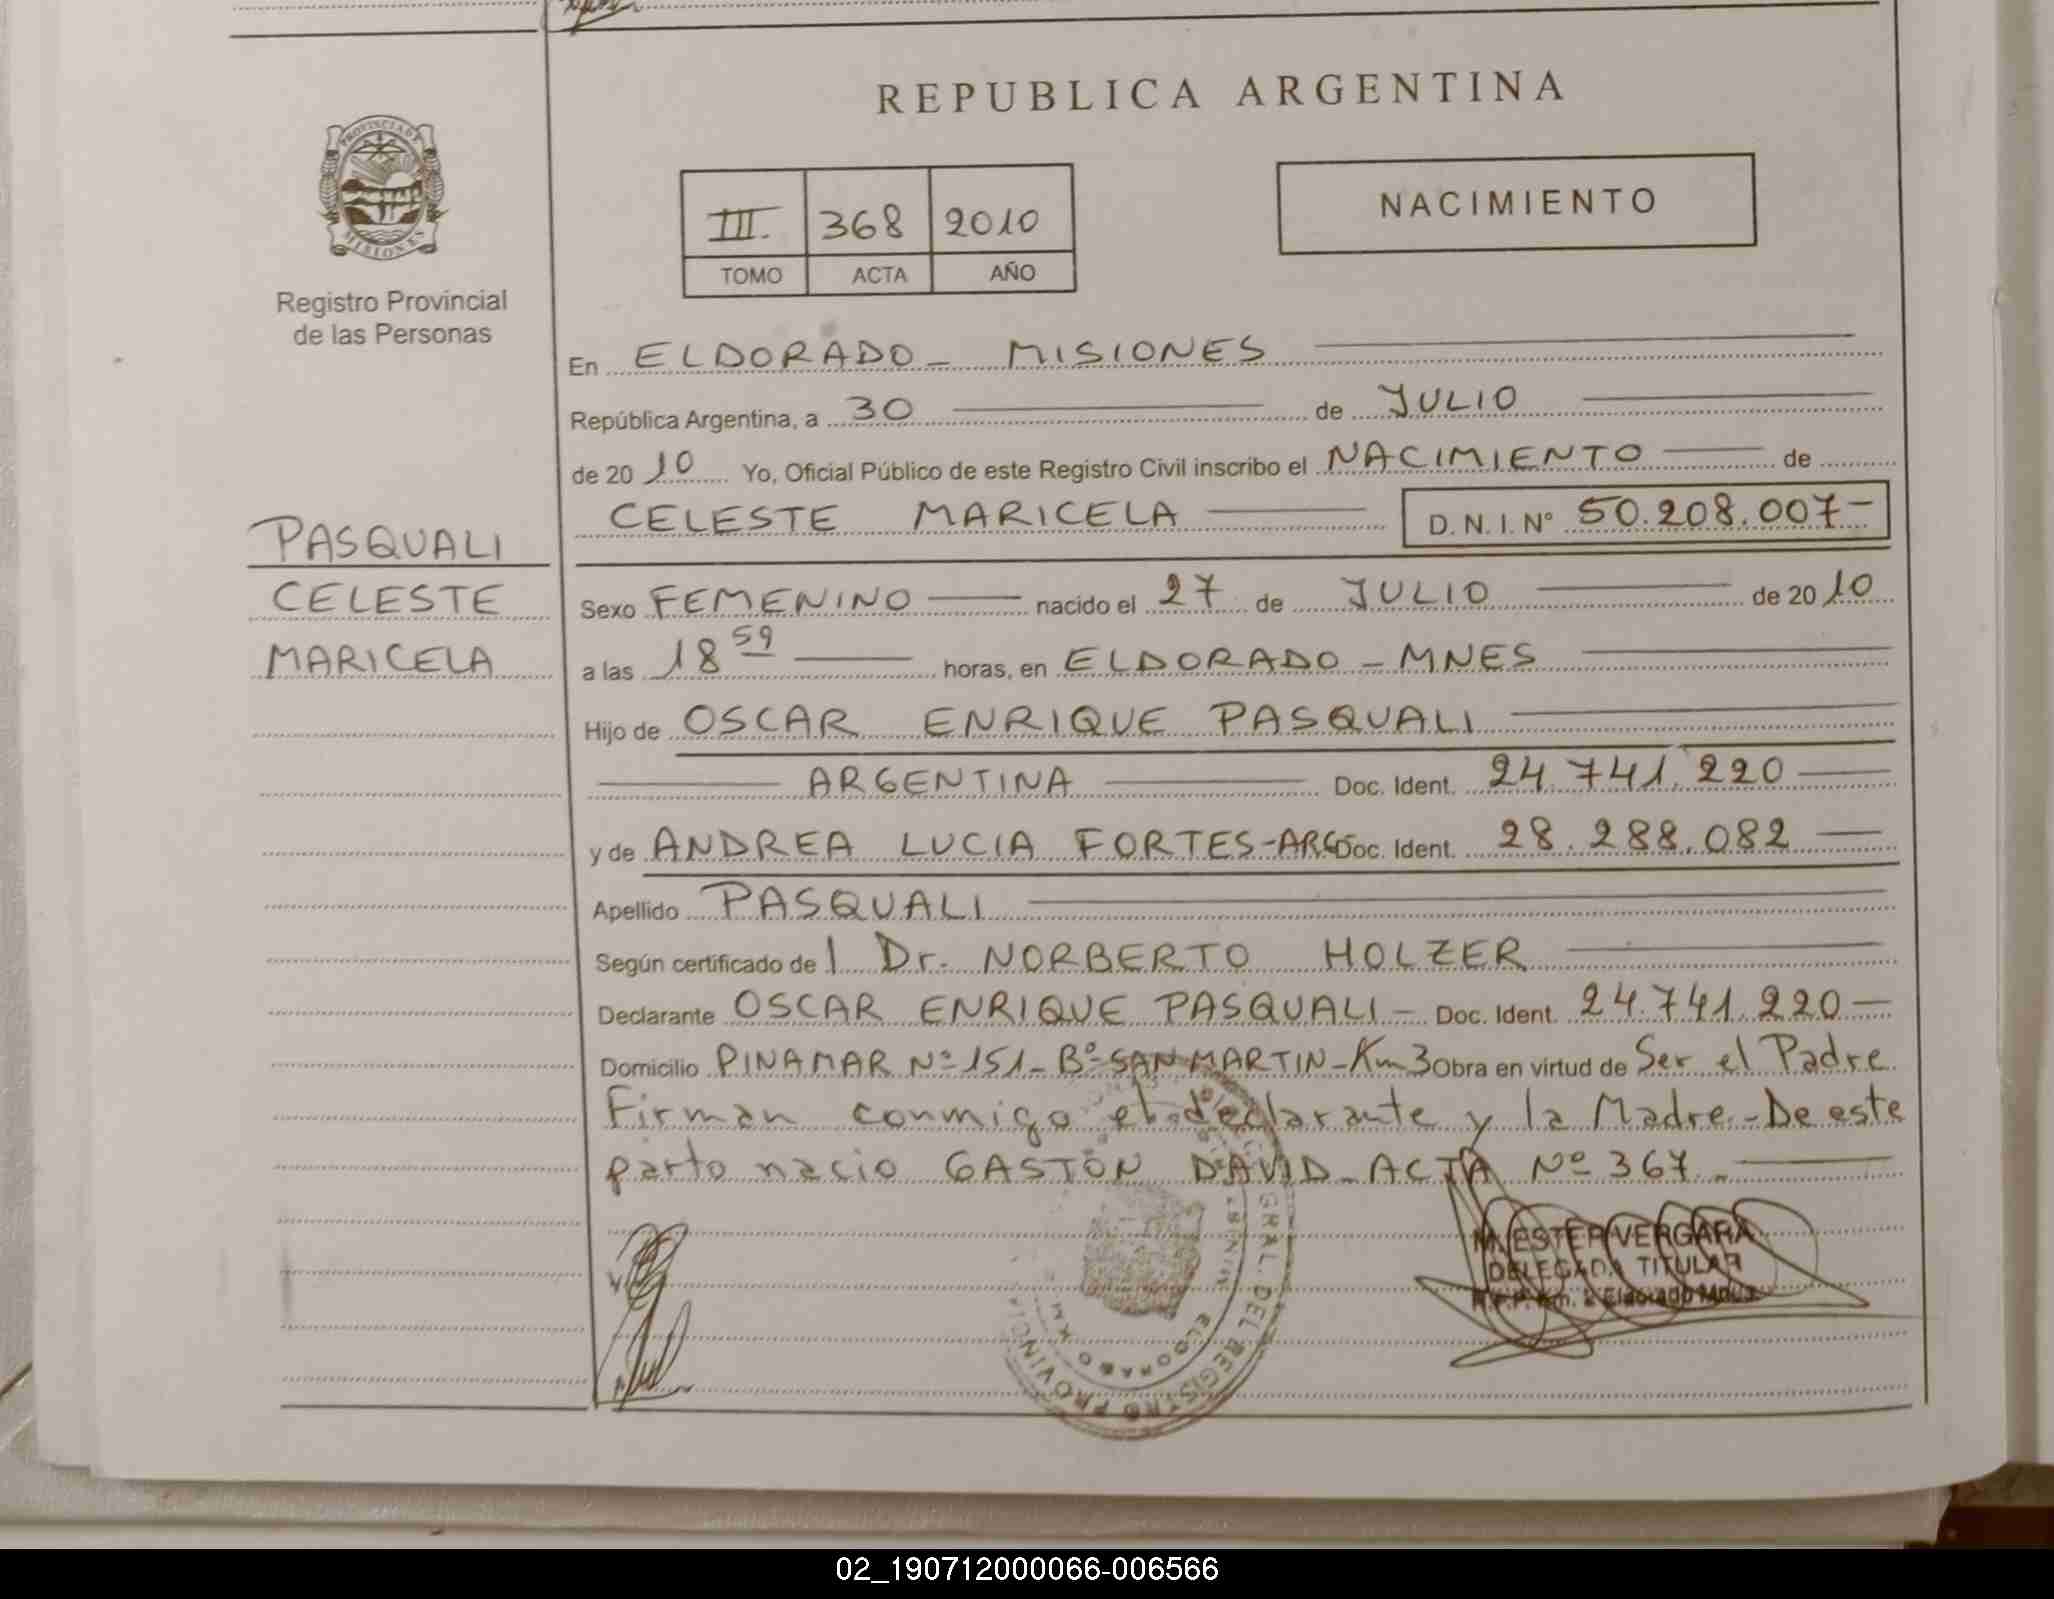 REPUBLICA ARGENTINA
PROVINCIA DE
MISIONES
Registro Provincial
de las Personas
III. 368 2010
TOMO ACTA AÑO
NACIMIENTO
En ELDORADO - MISIONES
República Argentina, a 30 de JULIO
de 2010 Yo, Oficial Público de este Registro Civil inscribo el NACIMIENTO de
CELESTE MARICELA D.N.I. N° 50.208.007-
PASQUALI
CELESTE
MARICELA
Sexo FEMENINO nacido el 27 de JULIO de 2010
a las 18 59 horas, en ELDORADO - MNES
Hijo de OSCAR ENRIQUE PASQUALI
ARGENTINA Doc. Ident. 24.741.220
y de ANDREA LUCIA FORTES-ARG Doc. Ident. 28.288.082
Apellido PASQUALI
Según certificado de l Dr. NORBERTO HOLZER
Declarante OSCAR ENRIQUE PASQUALI - Doc. Ident. 24.741.220
Domicilio PINAMAR Nº 151 - Bº SAN MARTIN - Km 3 Obra en virtud de Ser el Padre
Firman conmigo el declarante y la Madre - De este
parto nacio GASTON DAVID - ACTA Nº 367.
GRAL. DEL REGISTRO PROVINCIAL
ELDORADO KM
M. ESTER VERGARA
DELEGADA TITULAR
R.P.P. Km. 2 Eldorado Mnes.
02_190712000066-006566